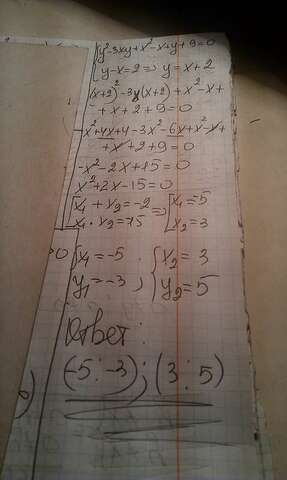 {y²-3xy+x²-x+y+9=0
{y-x=2 => y=x+2
(x+2)²-3x(x+2)+x²-x+
+x+2+9=0
x²+4x+4-3x²-6x+x²-x+
+x+2+9=0
-x²-2x+15=0
x²+2x-15=0
[x₁+x₂=-2 => [x₁=-5
x₁·x₂=-15 x₂=3
{x₁=-5 ; {x₂=3
y₁=-3 y₂=5
Ответ:
(-5:-3);(3:5)